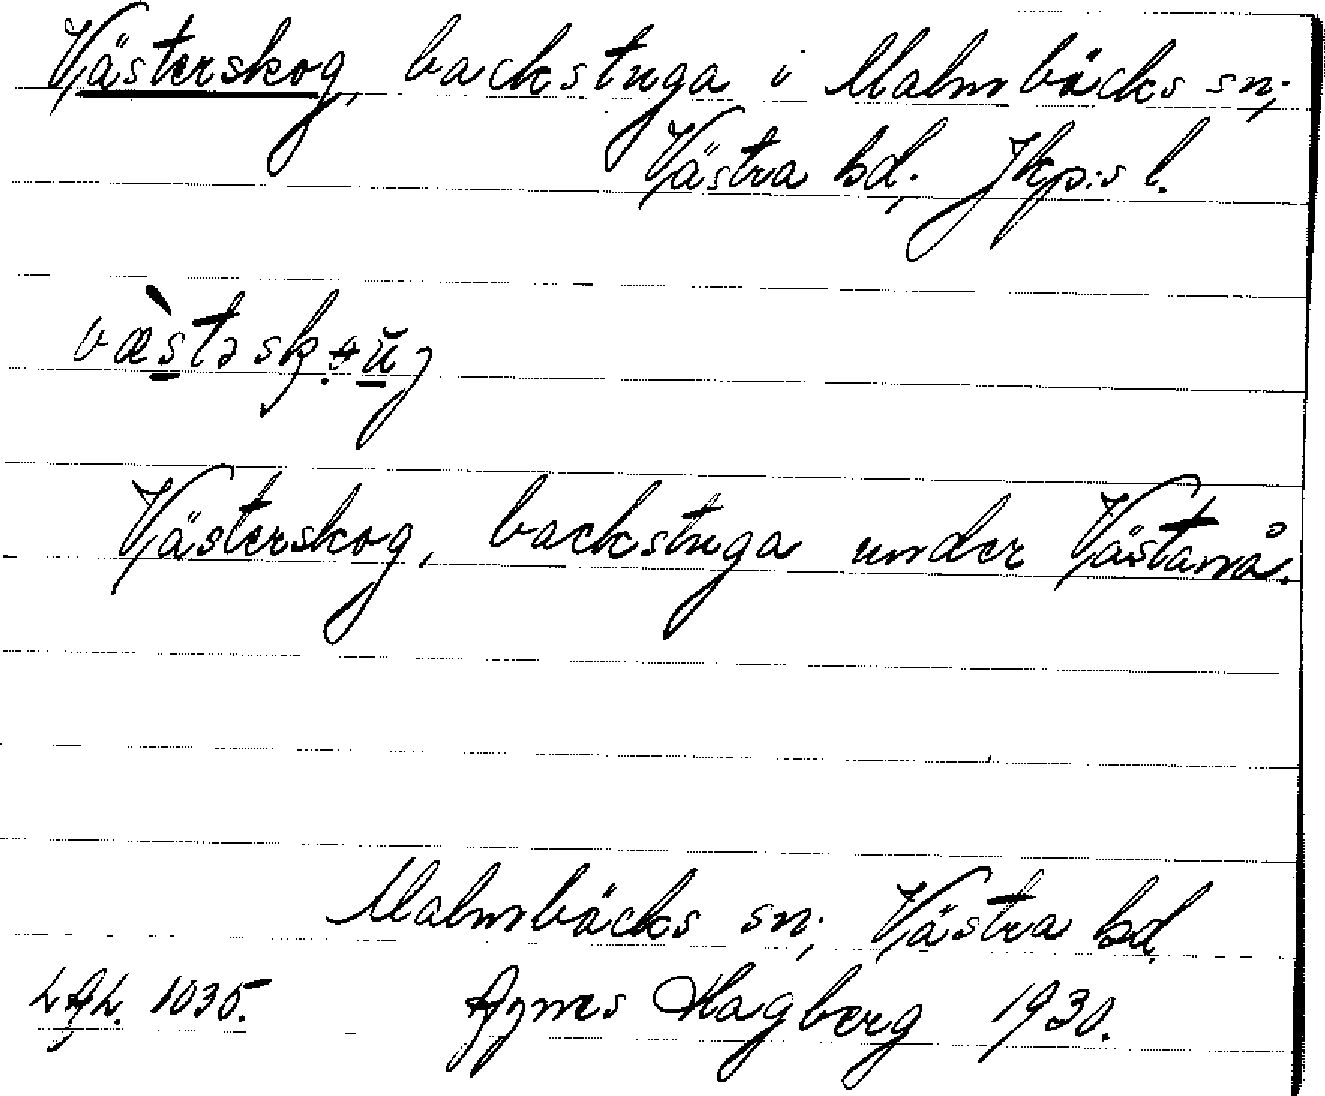 Västerskog, backstuga i Malmbäcks sn.,
Västra hd., Jkp:s l.
Västerskog, backstuga under Västanå.
Malmbäcks sn., Västra hd.
1035. Agnes Hagberg 1930.